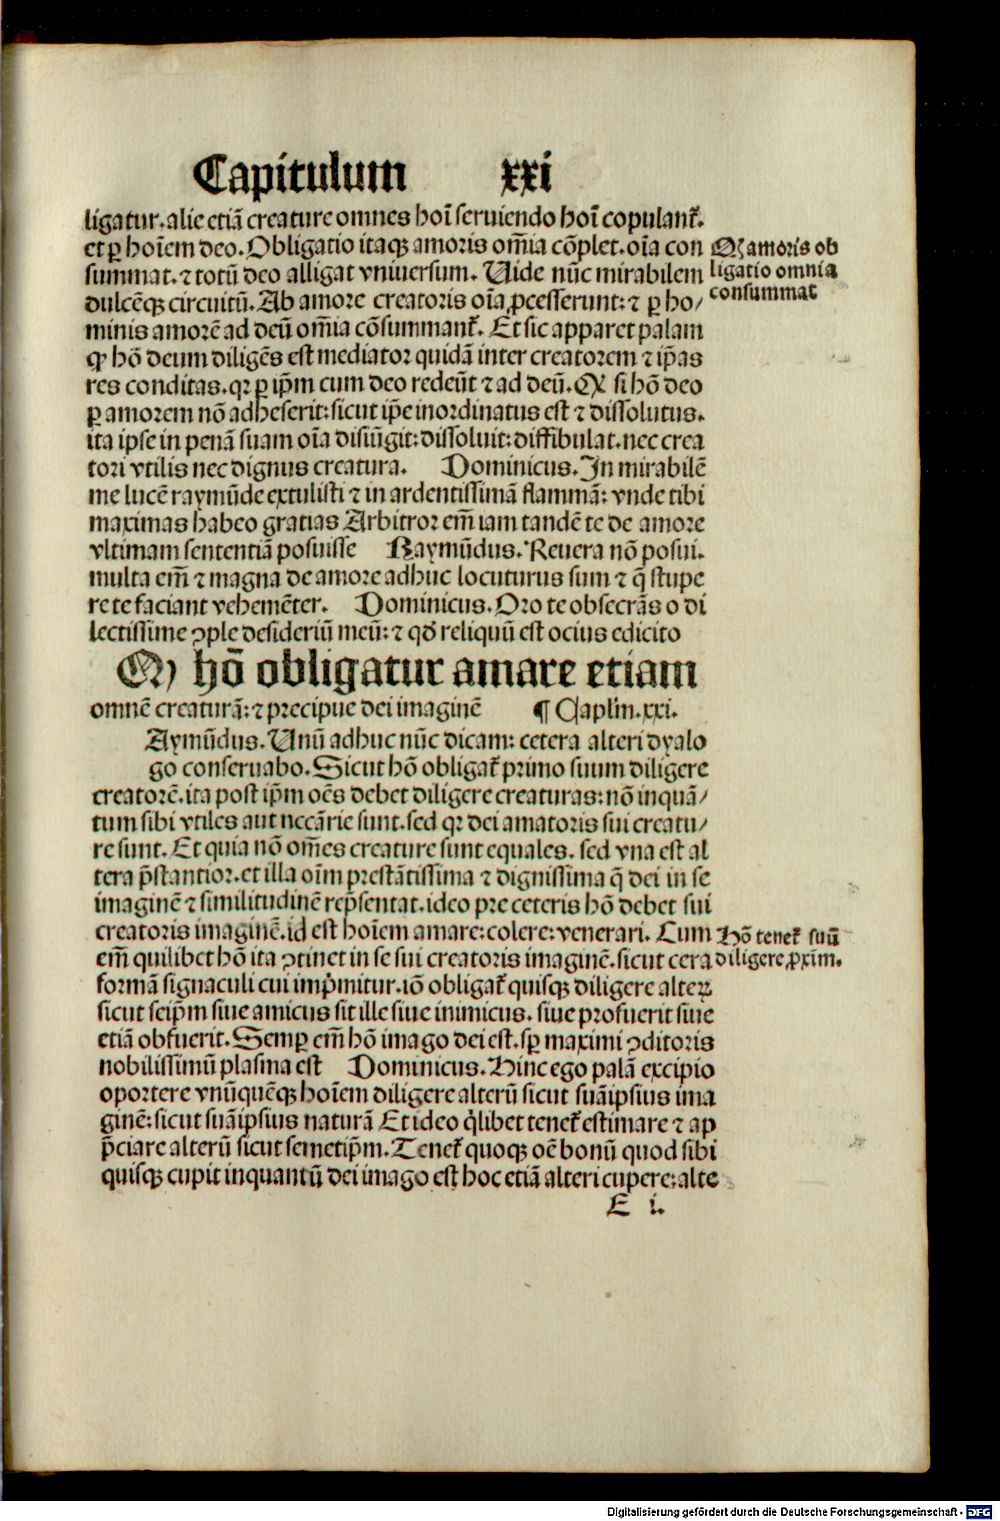 Capitulum xxi
ligatur. alie etiā creature omnes hoī seruiendo hoī copulant᷑.
et ꝑ hoīem deo. Obligatio itaqꝫ amoris om̄ia cōplet. oīa con
summat. ⁊ totū deo alligat vniuersum. Uide nūc mirabilem
dulcēqꝫ circuitū. Ab amore creatoris oīa ꝓcesserunt: ⁊ ꝑ ho/
minis amorē ad deū om̄ia cōsummant᷑. Et sic apparet palam
ꝙ hō deum diligēs est mediator quidā inter creatorem ⁊ ip̄as
res conditas. qꝛ ꝑ ip̄m cum deo redeūt ⁊ ad deū. Ꝙ si hō deo
ꝑ amorem nō adheserit: sicut ip̄e inordinatus est ⁊ dissolutus.
ita ipse in penā suam oīa disiūgit: dissoluit: diffibulat. nec crea
tori vtilis nec dignus creatura. Dominicus. In mirabilē
me lucē raymūde extulisti ⁊ in ardentissimā flammā: vnde tibi
maximas habeo gratias Arbitror em̄ iam tandē te de amore
vltimam sententiā posuisse Raymūdus. Reuera nō posui.
multa em̄ ⁊ magna de amore adhuc locuturus sum ⁊ q̄ stupe
re te faciant vehemēter. Dominicus. Oro te obsecrās o di
lectissime ꝯple desideriū meū: ⁊ qd̛ reliquū est ocius edicito
Ꝙ hō obligatur amare etiam
omnē creaturā: ⁊ precipue dei imaginē ¶ Capl̄m. xxi.
Aymūdus. Unū adhuc nūc dicam: cetera alteri dyalo
go conseruabo. Sicut hō obligat᷑ primo suum diligere
creatorē. ita post ip̄m oēs debet diligere creaturas: nō inquā/
tum sibi vtiles aut neccārie sunt. sed qꝛ dei amatoris sui creatu/
re sunt. Et quia nō om̄es creature sunt equales. sed vna est al
tera p̄stantior. et illa oīm prestātissima ⁊ dignissima q̄ dei in se
imaginē ⁊ similitudinē rep̄sentat. ideo pre ceteris hō debet sui
creatoris imaginē. id est hoīem amare: colere: venerari. Cum
em̄ quilibet hō ita ꝯtinet in se sui creatoris imaginē. sicut cera
formā signaculi cui imp̍mitur. iō obligat᷑ quisqꝫ diligere alteꝝ
sicut seip̄m siue amicus sit ille siue inimicus. siue profuerit siue
etiā obfuerit. Semꝑ em̄ hō imago dei est. sꝑ maximi ꝯditoris
nobilissimū plasma est Dominicus. Hinc ego palā excipio
oportere vnūquēqꝫ hoīem diligere alterū sicut suāipsius ima
ginē: sicut suāipsius naturā Et ideo q̍libet tenet᷑ estimare ⁊ ap
p̄ciare alterū sicut semetip̄m. Tenet᷑ quoqꝫ oē bonū quod sibi
quisqꝫ cupit inquantū dei imago est hoc etiā alteri cupere: alte
E i.
Ꝙ amoris ob
ligatio omnia
consummat
Hō tenet᷑ suū
diligere ꝓxīm.
Digitalisierung gefördert durch die Deutsche Forschungsgemeinschaft - DFG